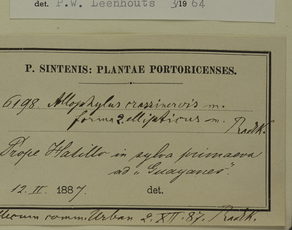 det. P.W. Leenhouts 3/1964
P. SINTENIS: PLANTAE PORTORICENSES.
6198. Allophylus crassinervis m.
forma 2. ellipticus m. Radlk.
Prope Hatillo in sylva primaeva
ad „Guayanes"
12. II. 1887. det.
comm. Urban 2. XII. 87. Radlk.